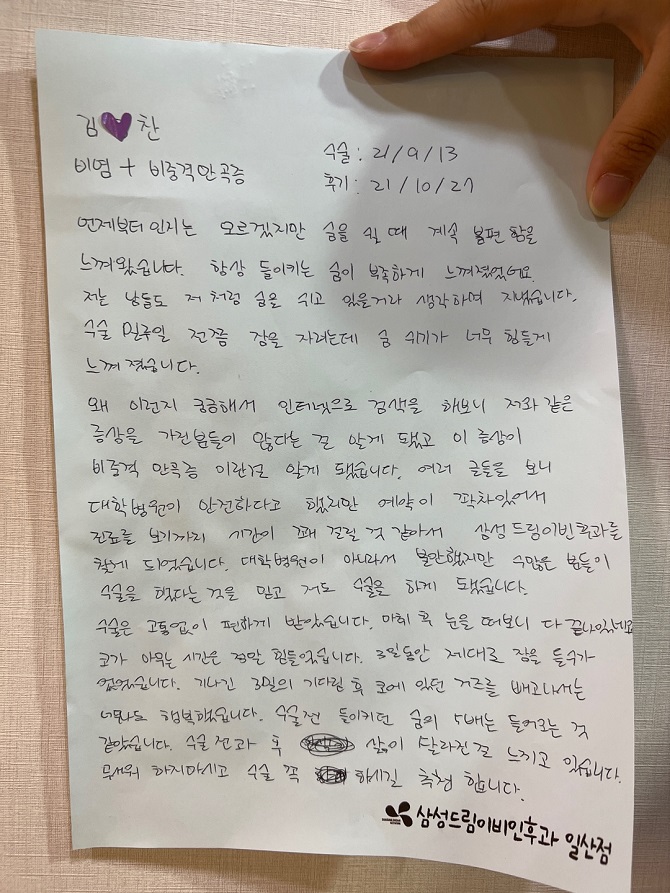 김💜찬
수술 : 21/9/13
비염 + 비중격만곡증
후기 : 21/10/27
언제부터인지는 모르겠지만 숨을 쉴 때 계속 불편함을
느껴왔습니다. 항상 들이키는 숨이 부족하게 느껴졌었어요.
저는 남들도 저처럼 숨을 쉬고 있을거라 생각하며 지냈습니다.
수술 일주일 전쯤 잠을 자려는데 숨 쉬기가 너무 힘들게
느껴졌습니다.
왜 이런지 궁금해서 인터넷으로 검색을 해보니 저와 같은
증상을 가진분들이 많다는 걸 알게 됐고 이 증상이
비중격 만곡증 이란걸 알게 됐습니다. 여러 글들을 보니
대학병원이 안전하다고 했지만 예약이 꽉차있어서
진료를 보기까지 시간이 꽤 걸릴 것 같아서 삼성드림이빈후과를
찾게 되었습니다. 대학병원이 아니라서 불안했지만 수많은 분들이
수술을 했다는 것을 믿고 저도 수술을 하게 됐습니다.
수술은 고통없이 편하게 받았습니다. 마취 후 눈을 떠보니 다 끝나있네요
코가 아무는 시간은 정말 힘들었습니다. 3일동안 제대로 잠을 들수가
없었습니다. 기나긴 3일의 기다림 후 코에 있던 거즈를 빼고나서는
너무나도 행복했습니다. 수술전 들이키던 숨의 5배는 들어오는 것
같았습니다. 수술 전과 후 삶이 달라진걸 느끼고 있습니다.
무서워 하지마시고 수술 꼭 하시길 추천 합니다.
삼성드림이비인후과 일산점